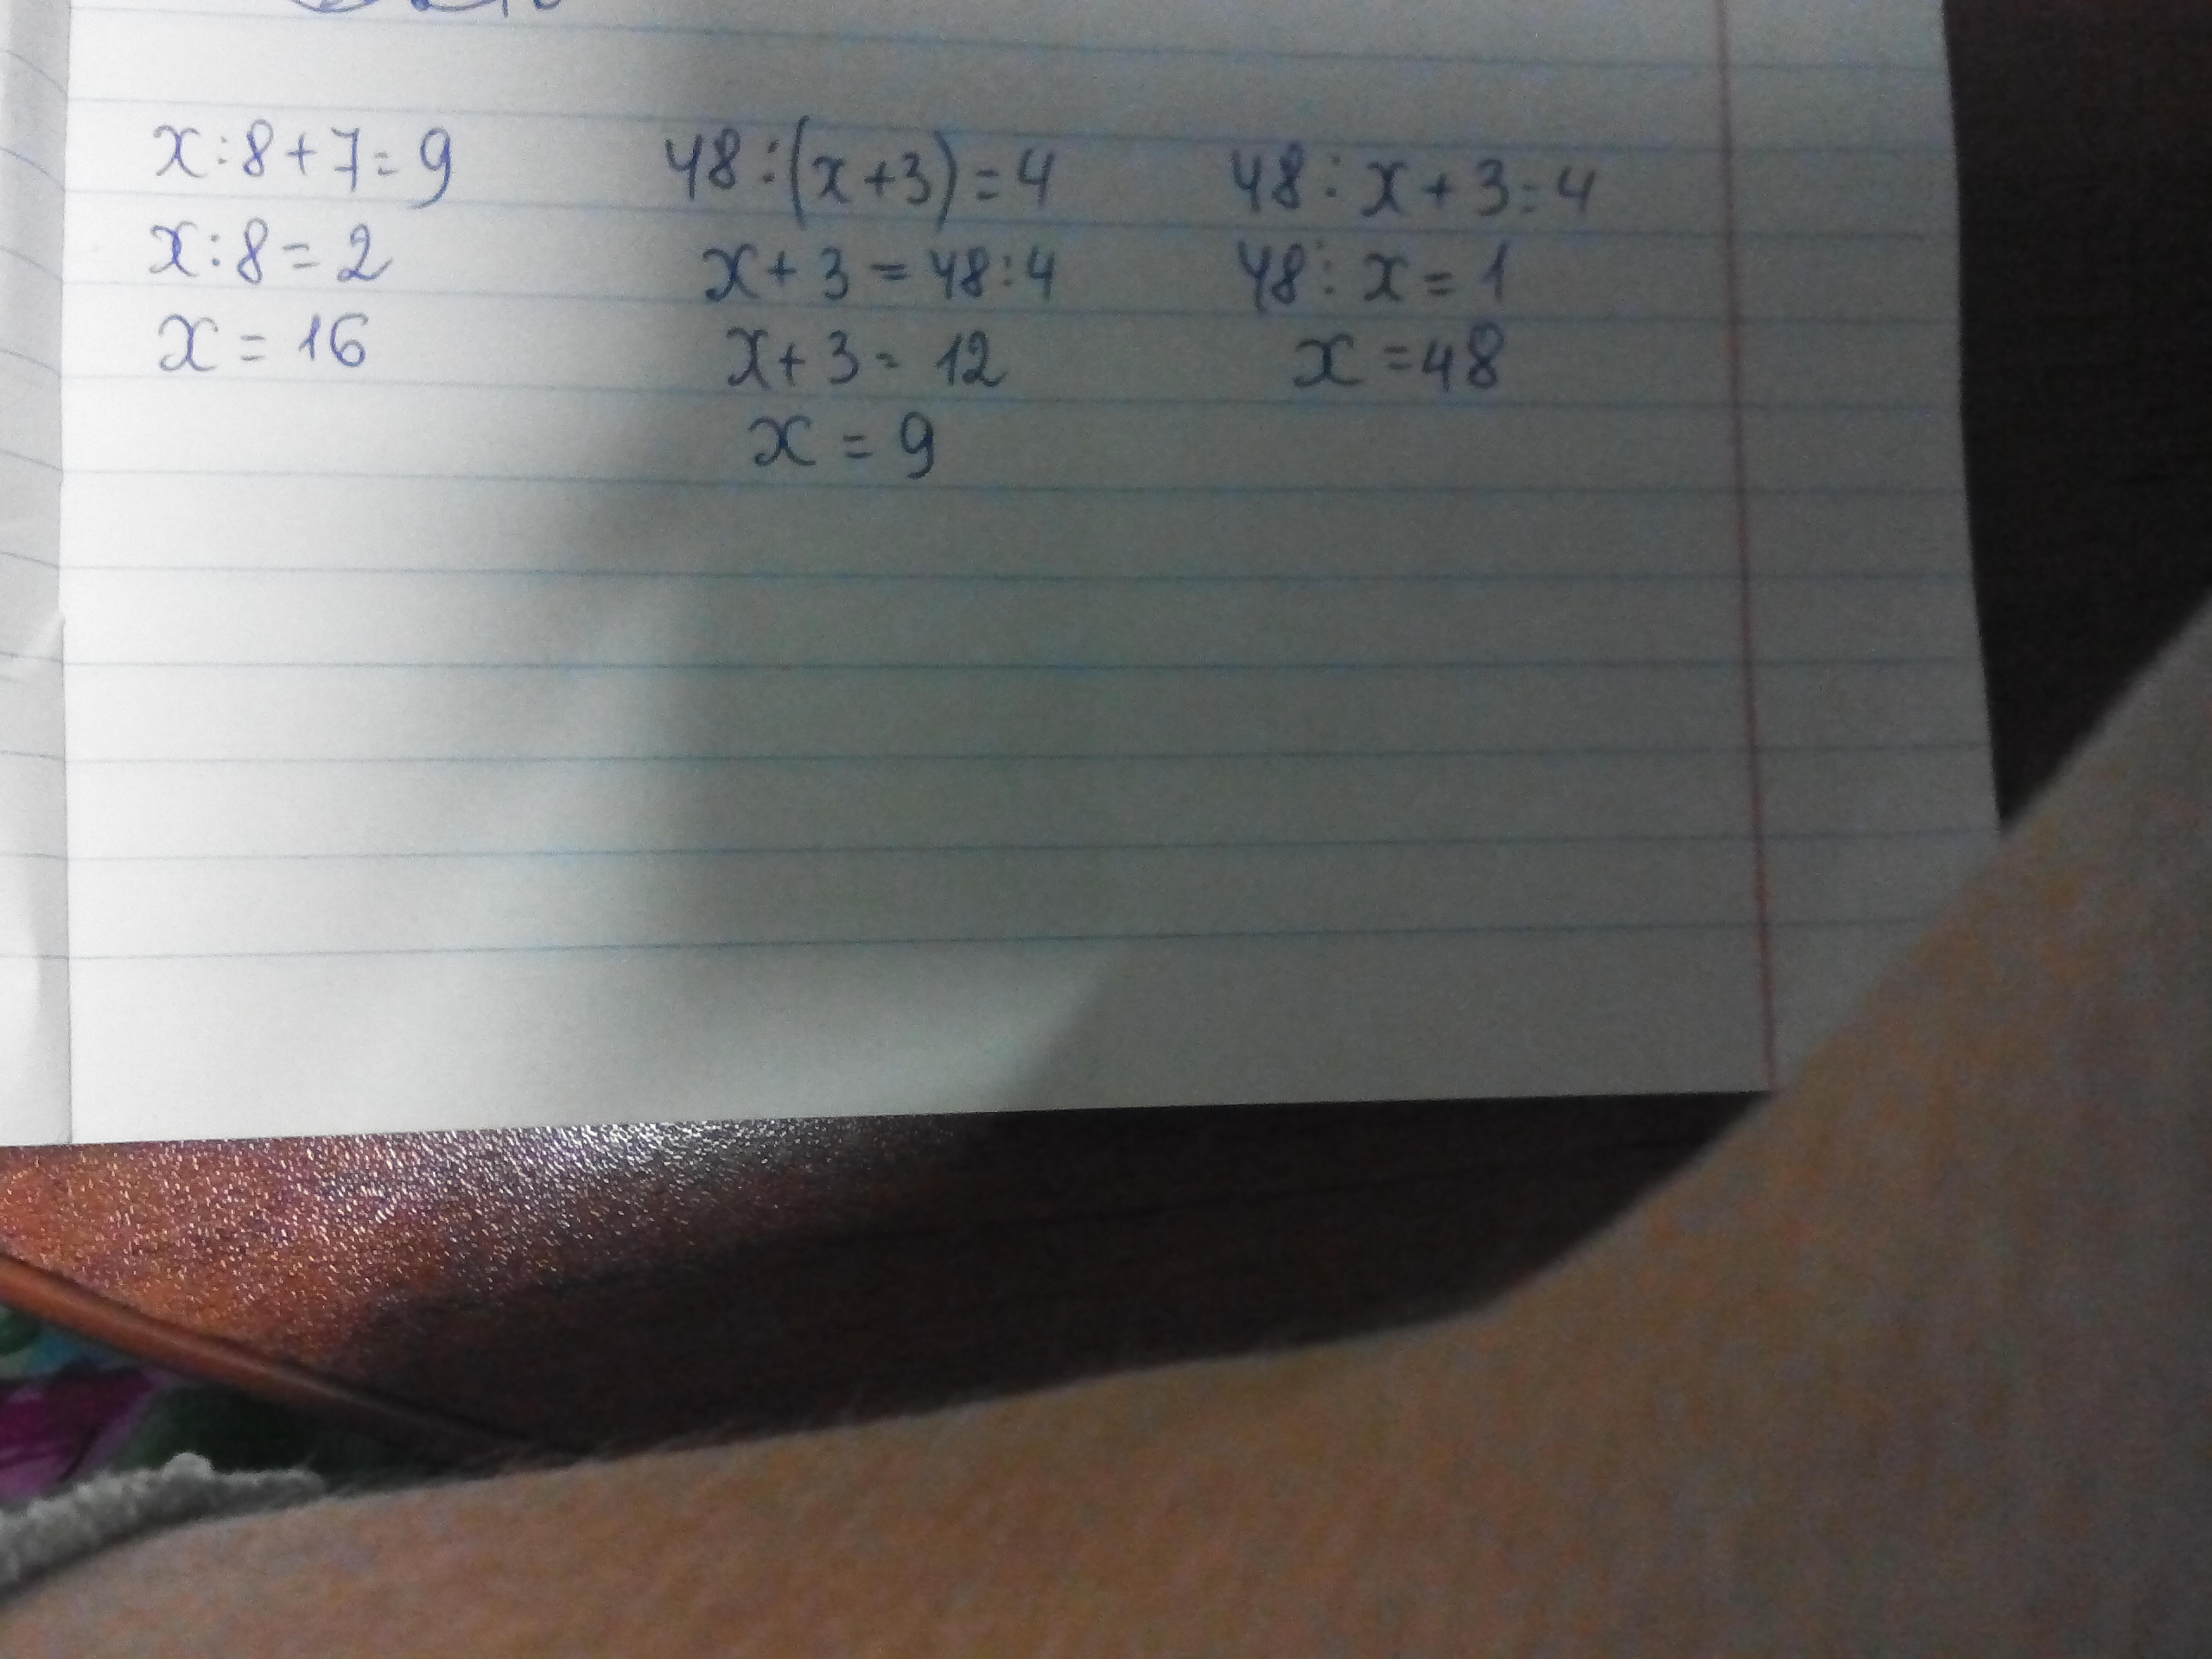 x:8+7=9
x:8=2
x=16
48:(x+3)=4
x+3=48:4
x+3=12
x=9
48:x+3=4
48:x=1
x=48